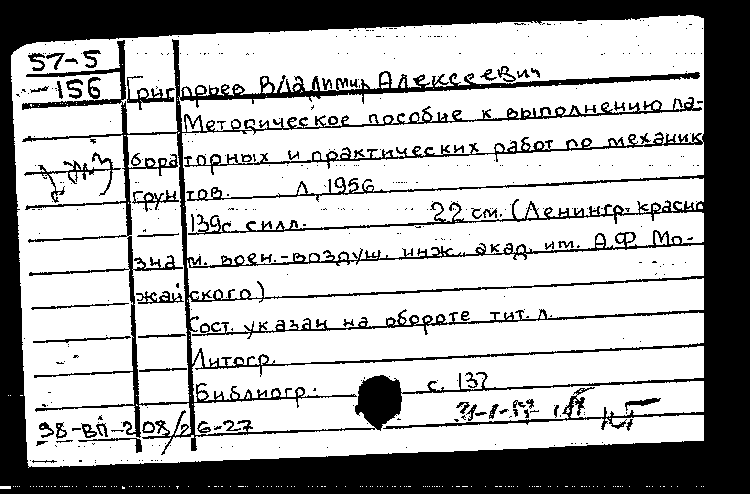 57-5
-156 Григорьев, Владимир Алексеевич
Методическое пособие к выполнению ла-
бораторных и практических работ по механик
грунтов. Л, 1956.
139с. с илл. 22 см. (Ленингр. красно
знам. воен.-воздуш. инж. акад. им. А.Ф. Мо-
жайского)
Сост. указан на обороте тит. л.
Литогр.
Библиогр. с. 137
38-ВП-208/26-27